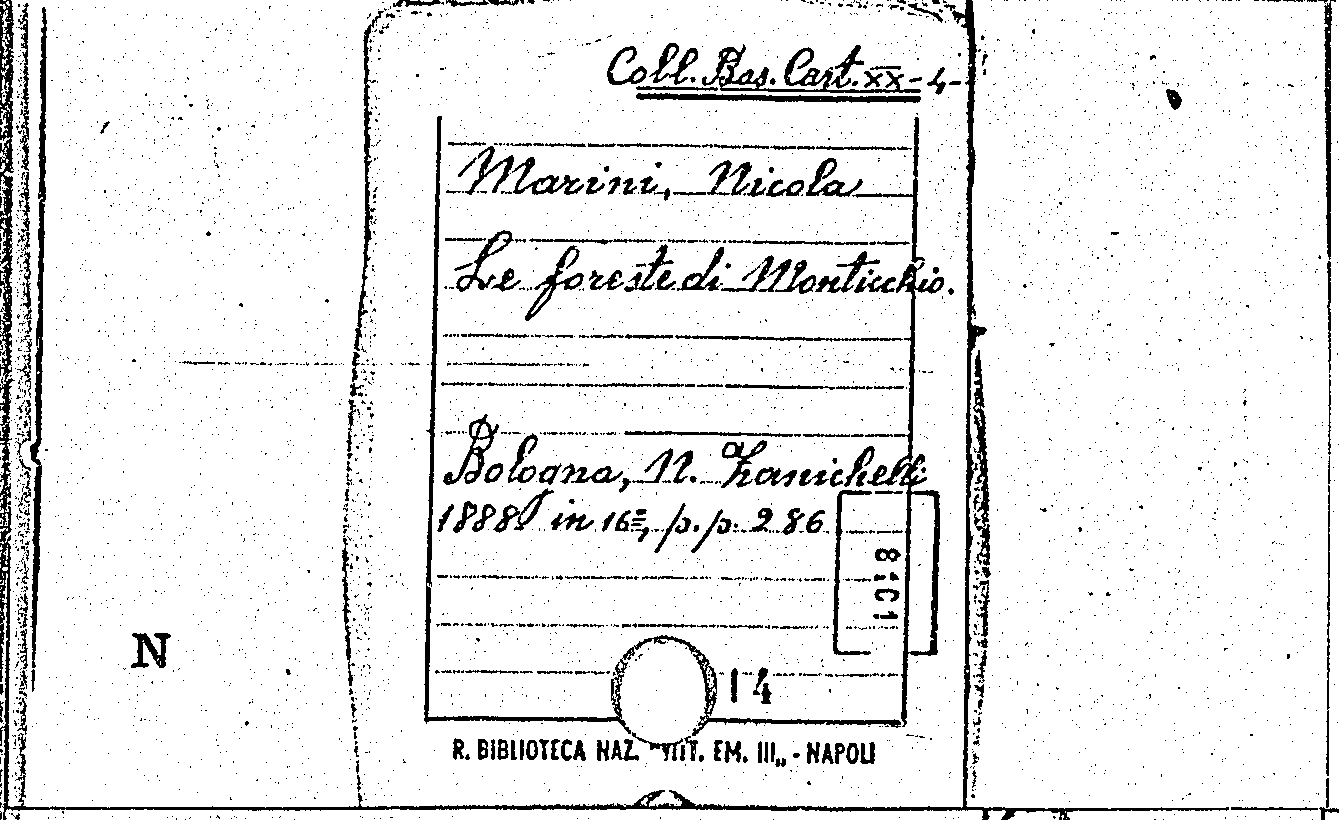 Coll. Bas. Cart. XX-4-
Marini, Nicola
Le foreste di Monticchio.
Bologna, N. Zanichelli
1888 in 16º, p.p. 286
8101
N
14
R. BIBLIOTECA NAZ. "VITT. EM. III„ - NAPOLI